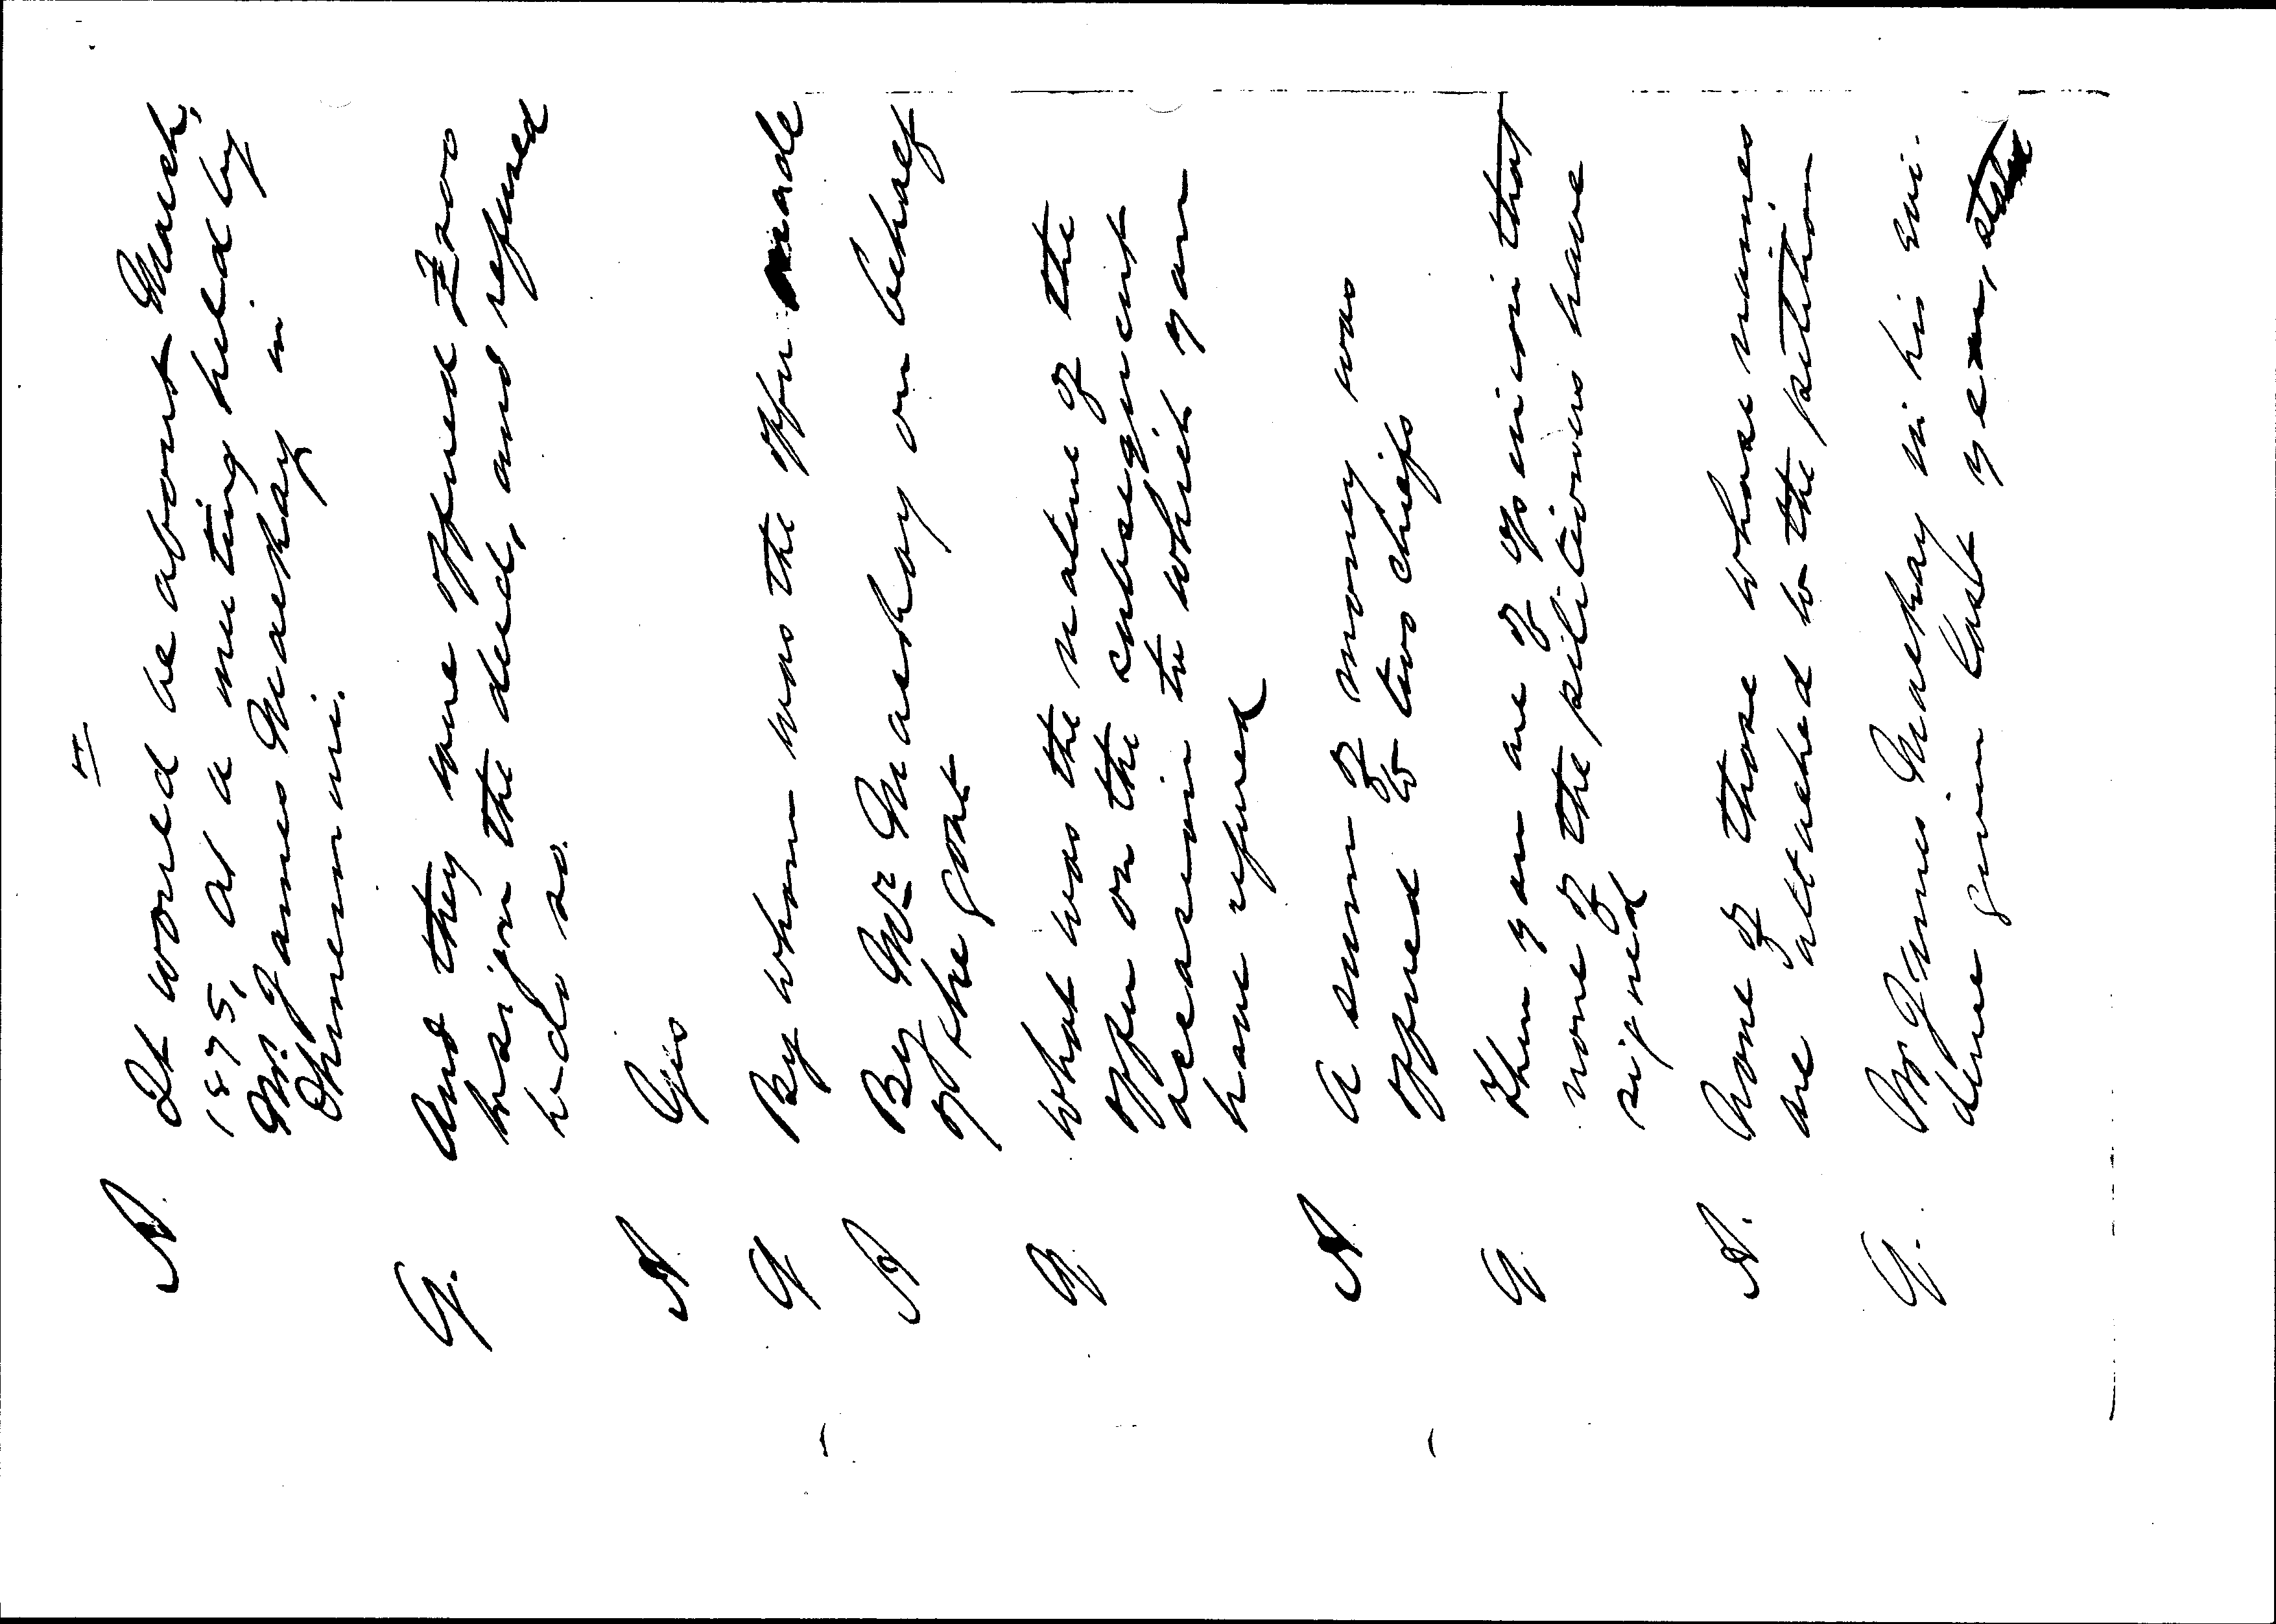 A. It would be about March,
1875, at a meeting held by
Mr. James Mackay in
Ohinemuri.
Q. And they were offered £200
to sign the deed, and refused
to do so.
A Yes
Q By whom was the offer made
A By Mr Mackay on behalf
of the Govt
Q. What was the nature of the
offer on the subsequent
occasion to which you
have refered
A. A sum of money was
offered to two chiefs
Q. Then you are of opinion that
none of the petitioners have
signed
A. None of those whose names
are attached to the petition
Q. Mr James Mackay in his evi-
dence given last year,